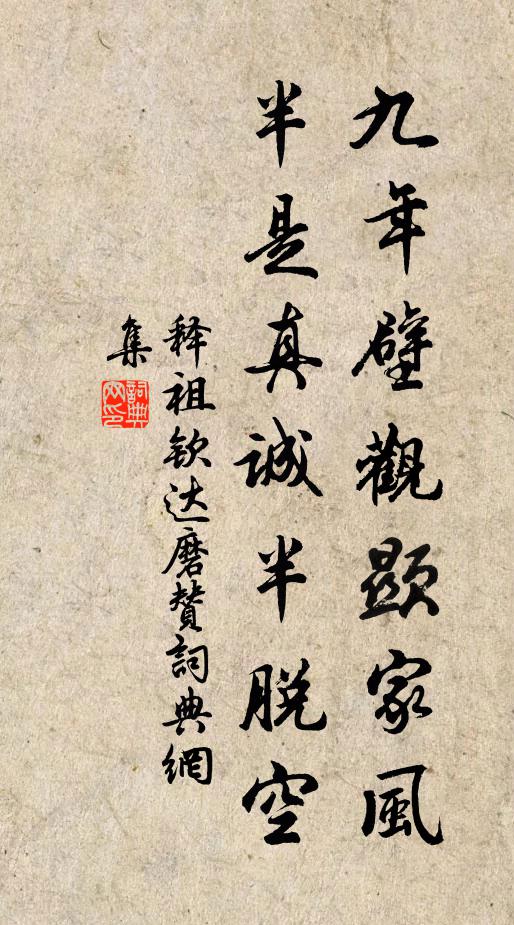 九年壁觀顯家風
半是真诚半脫空
释祖钦达磨赞詞典網
集
詞典网印